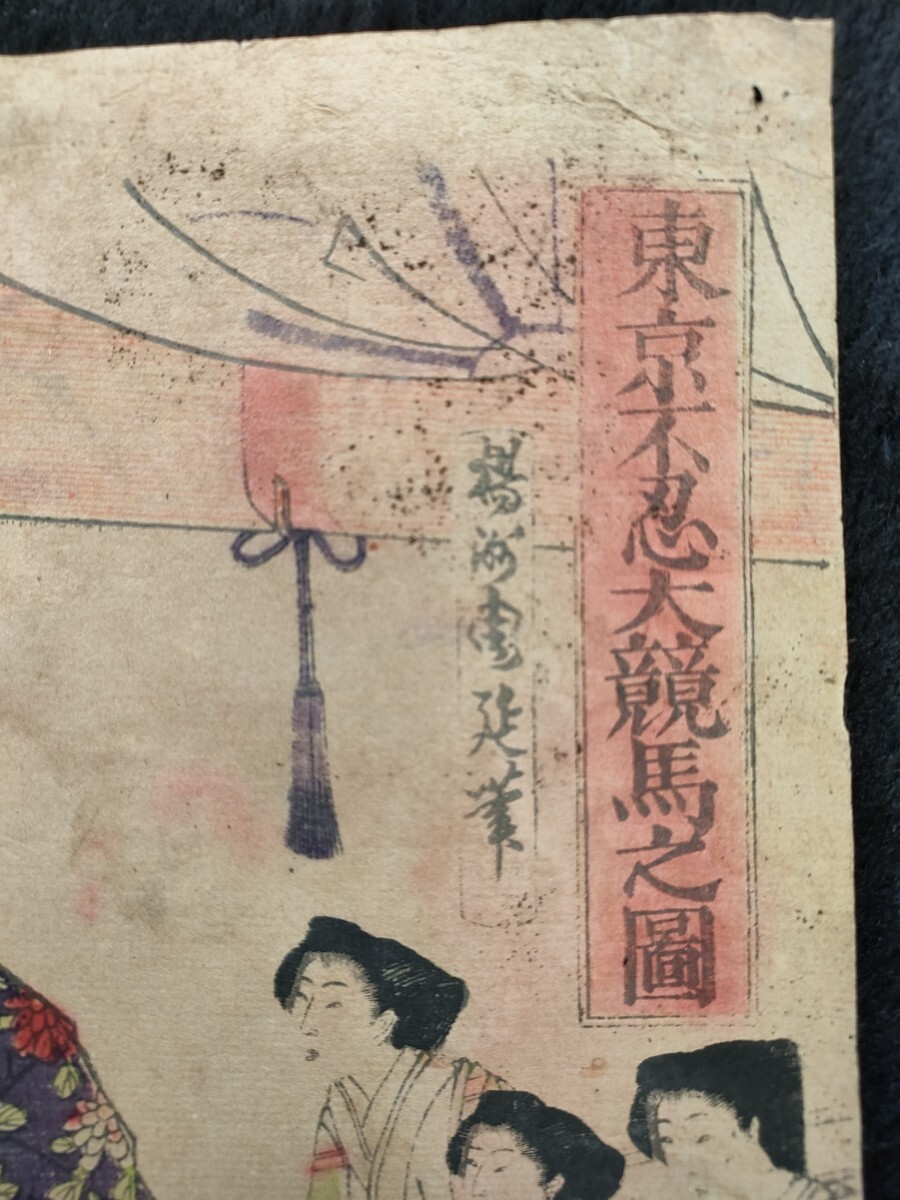 東京不忍大競馬之圖
楊洲周延筆